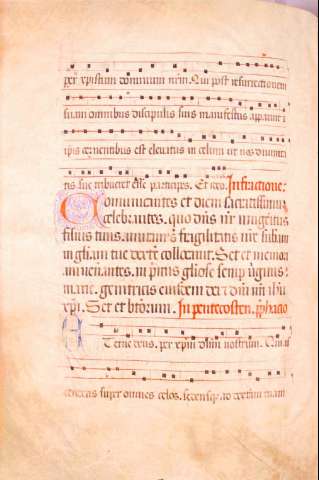 per xpistum dominum nr̄m. Qui post resurrectionem
suam omnibus discipulis suis manifestus apparuit
ipis cernentibus est eleuatus in celum ut nos diuinita
tis sue tribueret eē participes. Et ideo. Infractione.
Comunicantes et diem sacratissimum
celebrantes. quo dn̄s nr̄ unigenitus
filius tuus. fragilitatis nr̄e
in gl̄iam tue dexter̄e collocauit. Set et memoriam
uenerantes. in p̄mis gl̄iose semp uirginis
marie. genitricis eiusdem dei dn̄i nr̄i ihu
xp̄i. Set et b̄torum. In pentecosten.
Eterne deus. per xp̄m dn̄m nostrum. Qui
ascendens super omnes celos. sedensq; ad dexteram tuam